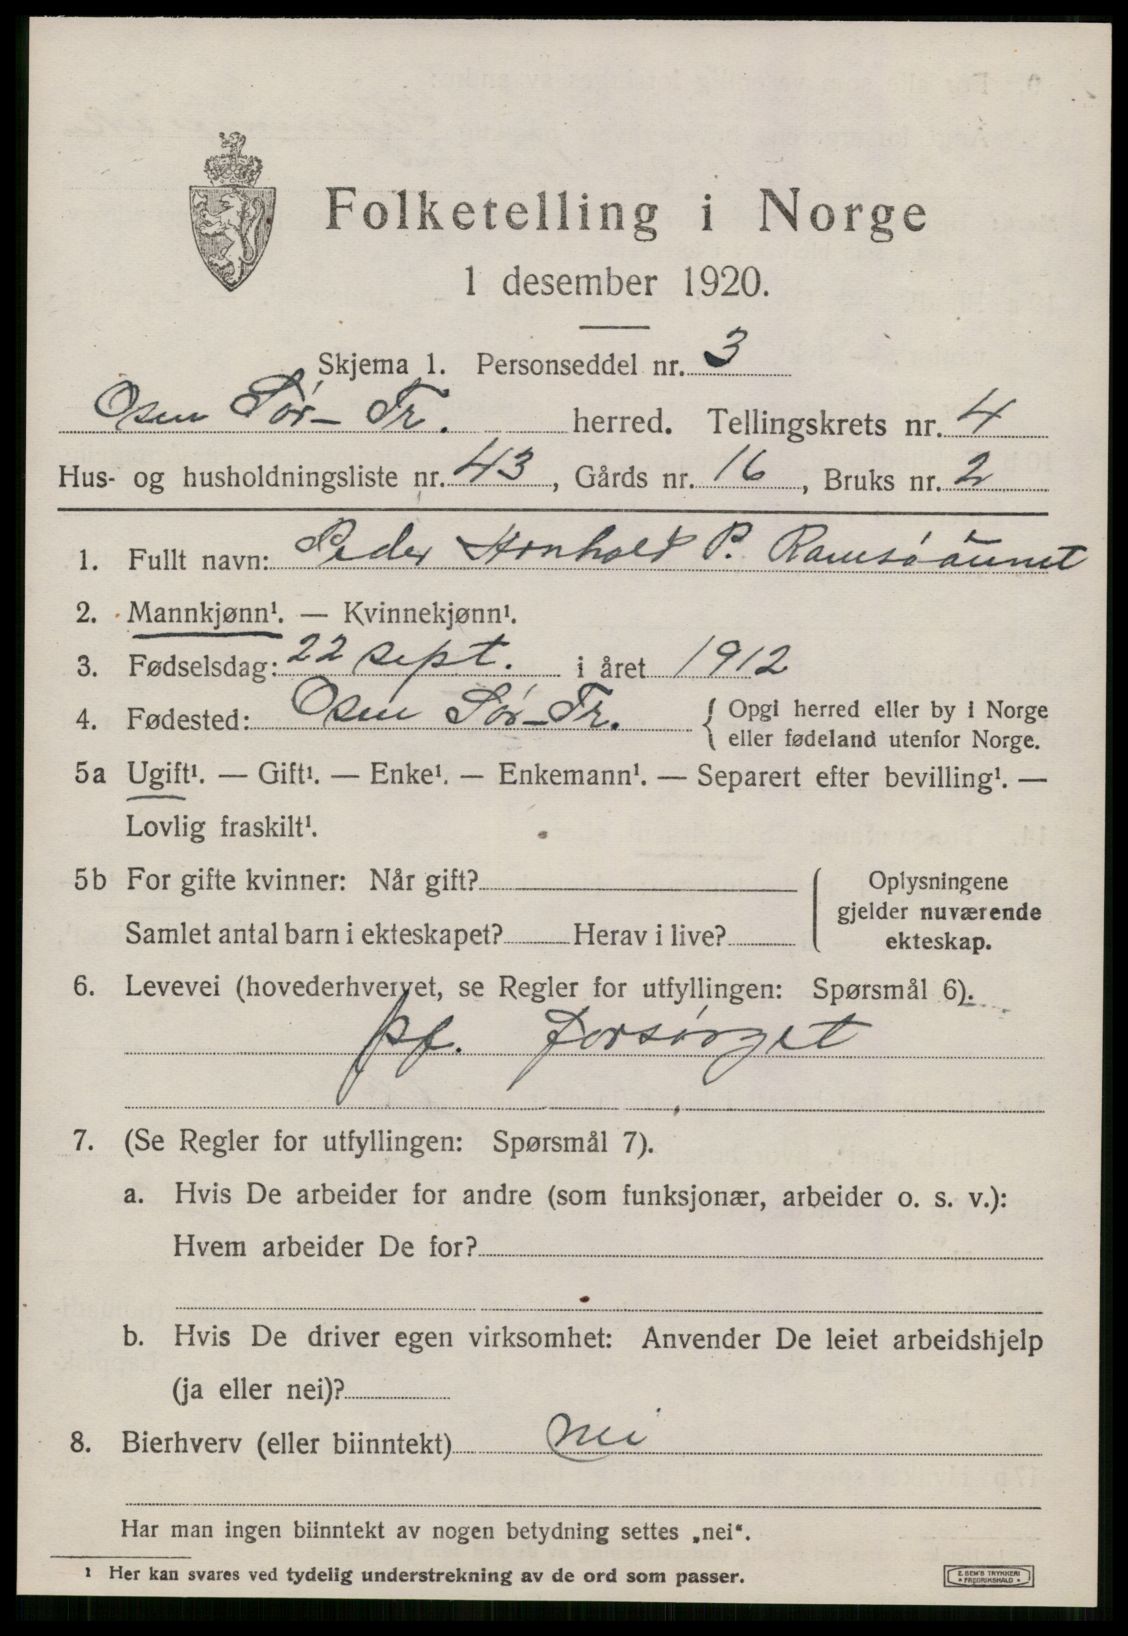 Folketelling i Norge
1 desember 1920.
Skjema 1. Personseddel nr. 3
Osen Sør-Tr. herred. Tellingskrets nr. 4
Hus- og husholdningsliste nr. 43, Gårds nr. 16, Bruks nr. 2
1. Fullt navn: Peder P. Ramsøaunet
2. Mannkjønn¹. — Kvinnekjønn¹.
3. Fødselsdag: 22 sept. i året 1912
4. Fødested: Osen Sør-Tr. { Opgi herred eller by i Norge
eller fødeland utenfor Norge.
5a Ugift¹. — Gift¹. — Enke¹. — Enkemann¹. — Separert efter bevilling¹. —
Lovlig fraskilt¹.
5b For gifte kvinner: Når gift?
Samlet antal barn i ekteskapet? Herav i live?
Oplysningene
gjelder nuværende
ekteskap.
6. Levevei (hovederhvervet, se Regler for utfyllingen: Spørsmål 6).
pf. forsørget
7. (Se Regler for utfyllingen: Spørsmål 7).
a. Hvis De arbeider for andre (som funksjonær, arbeider o. s. v.):
Hvem arbeider De for?
b. Hvis De driver egen virksomhet: Anvender De leiet arbeidshjelp
(ja eller nei)?
8. Bierhverv (eller biinntekt) nei
Har man ingen biinntekt av nogen betydning settes „nei“.
¹ Her kan svares ved tydelig understrekning av de ord som passer.
E. SEM'S TRYKKERI
FREDRIKSHALD